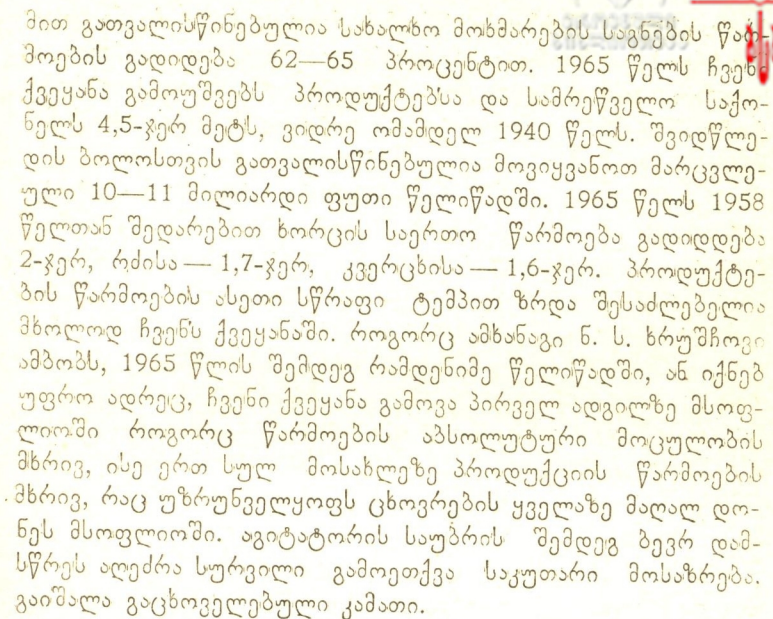 მით გათვალისწინებულია სახალხო მოხმარების საგნების წარ-
მოების გადიდება 62—65 პროცენტით. 1965 წელს ჩვენი
ქვეყანა გამოუშვებს პროდუქტებსა და სამრეწველო საქო-
ნელს 4,5-ჯერ მეტს, ვიდრე ომამდელ 1940 წელს. შვიდწლე-
დის ბოლოსთვის გათვალისწინებულია მოვიყვანოთ მარცვლე-
ული 10—11 მილიარდი ფუთი წელიწადში. 1965 წელს 1958
წელთან შედარებით ხორცის საერთო წარმოება გადიდდება
2-ჯერ, რძისა — 1,7-ჯერ, კვერცხისა — 1,6-ჯერ. პროდუქტე-
ბის წარმოების ასეთი სწრაფი ტემპით ზრდა შესაძლებელია
მხოლოდ ჩვენს ქვეყანაში. როგორც ამხანაგი ნ. ს. ხრუშჩოვი
ამბობს, 1965 წლის შემდეგ რამდენიმე წელიწადში, ან იქნებ
უფრო ადრეც, ჩვენი ქვეყანა გამოვა პირველ ადგილზე მსოფ-
ლიოში როგორც წარმოების აბსოლუტური მოცულობის
მხრივ, ისე ერთ სულ მოსახლეზე პროდუქციის წარმოების
მხრივ, რაც უზრუნველყოფს ცხოვრების ყველაზე მაღალ დო-
ნეს მსოფლიოში. აგიტატორის საუბრის შემდეგ ბევრ დამ-
სწრეს აღეძრა სურვილი გამოეთქვა საკუთარი მოსაზრება.
გაიშალა გაცხოველებული კამათი.